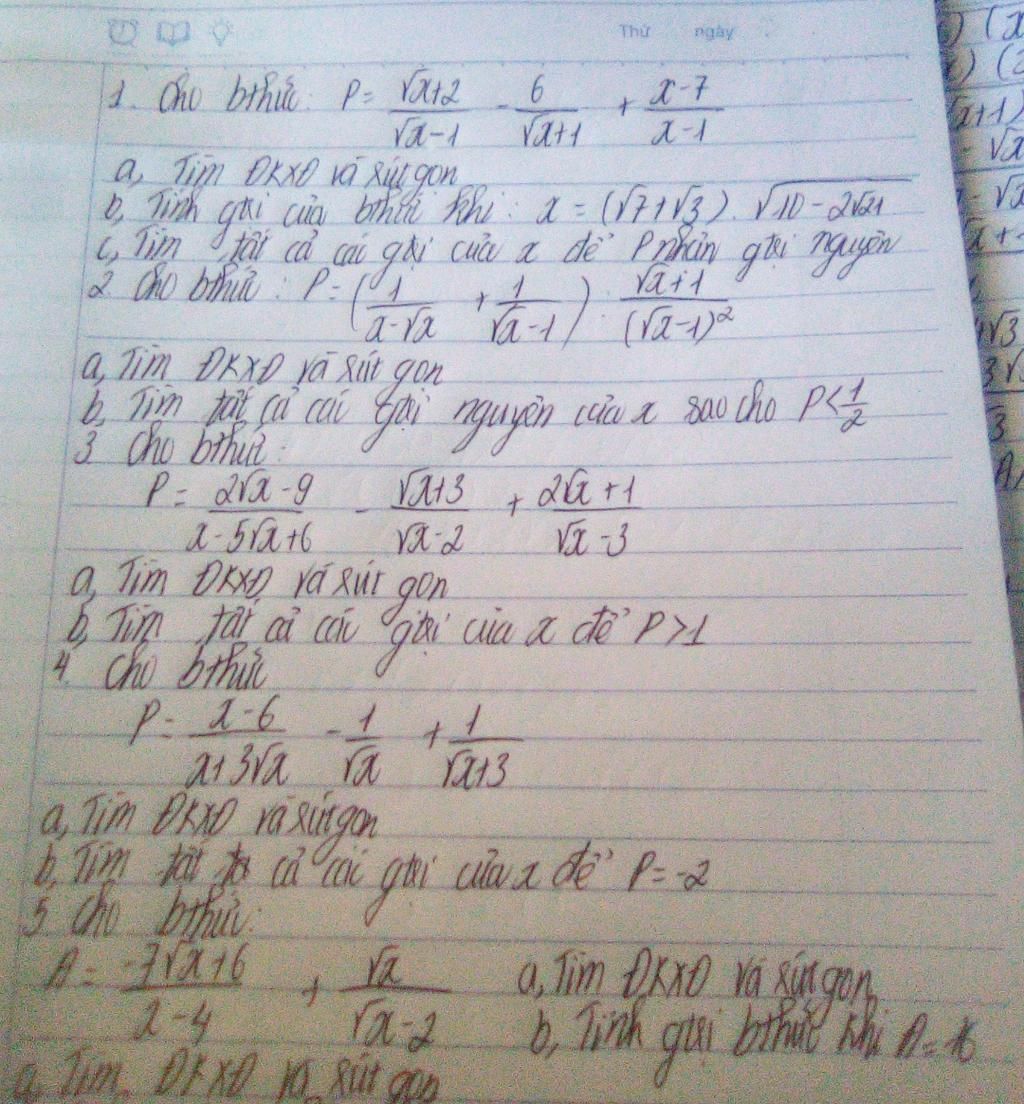 Thứ ngày
1. Cho bthức: P = (√x+2)/(√x-1) - 6/(√x+1) + (x-7)/(x-1)
a, Tìm ĐKXĐ và rút gọn
b, Tính gtrị của bthức khi: x = (√7+√3).√(10-2√21)
c, Tìm tất cả các gtrị của x để P nhận gtrị nguyên
2 Cho bthức: P = (1/(x-√x) + 1/(√x-1)) : (√x+1)/(√x-1)²
a, Tìm ĐKXĐ và rút gọn
b, Tìm tất cả các gtrị nguyên của x sao cho P < 1/2
3 Cho bthức:
P = (2√x-9)/(x-5√x+6) - (√x+3)/(√x-2) + (2√x+1)/(√x-3)
a, Tìm ĐKXĐ và rút gọn
b, Tìm tất cả các gtrị của x để P>1
4. Cho bthức
P = (x-6)/(x+3√x) - 1/√x + 1/(√x+3)
a, Tìm ĐKXĐ và rút gọn
b, Tìm tất cả các gtrị của x để P = -2
5 Cho bthức:
A = (-7√x+6)/(x-4) + √x/(√x-2) a, Tìm ĐKXĐ và rút gọn
b, Tính gtrị bthức khi A=16
a, Tìm ĐKXĐ và rút gọn